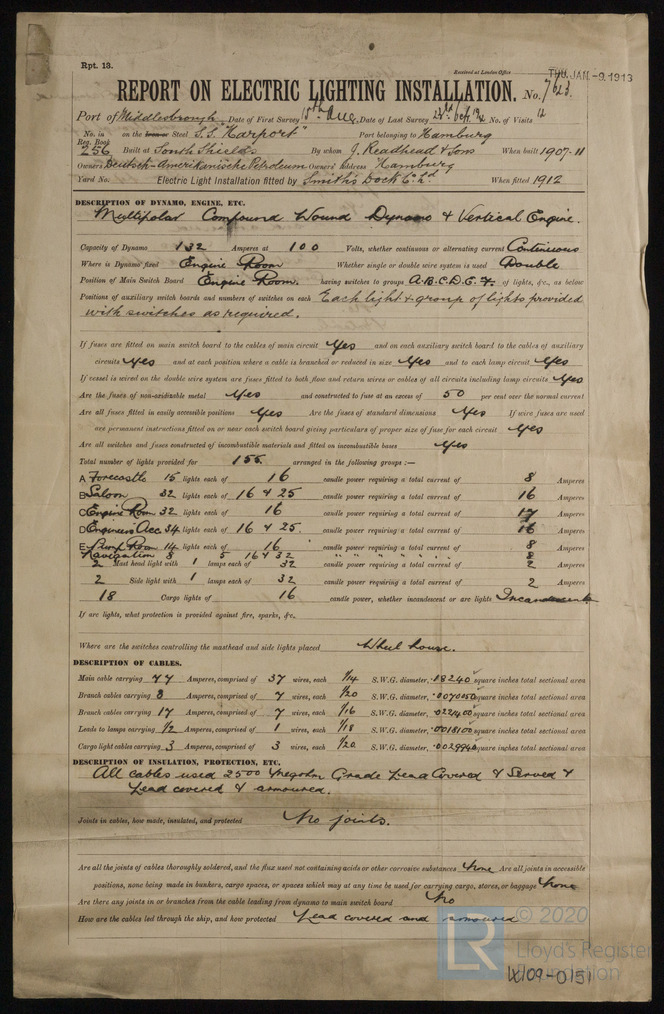 Rpt. 13.
Received at London Office
THU. JAN -9. 1913
REPORT ON ELECTRIC LIGHTING INSTALLATION. No. 7623
Port of Middlesbrough Date of First Survey 15th Aug. Date of Last Survey No. of Visits 12
No. in Reg. Book 256 on the Iron or Steel S.S. "Harport" Port belonging to Hamburg
Built at South Shields By whom J. Readhead & Sons When built 1907-11
Owners Deutsch-Amerikanische Petroleum Owners' Address Hamburg
Yard No. Electric Light Installation fitted by Smith's Dock Co. Ltd When fitted 1912
DESCRIPTION OF DYNAMO, ENGINE, ETC.
Multipolar Compound Wound Dynamo & Vertical Engine.
Capacity of Dynamo 132 Amperes at 100 Volts, whether continuous or alternating current Continuous
Where is Dynamo fixed Engine Room Whether single or double wire system is used Double
Position of Main Switch Board Engine Room. having switches to groups A.B.C.D.E.F. of lights, &c., as below
Positions of auxiliary switch boards and numbers of switches on each Each light & group of lights provided
with switches as required.
If fuses are fitted on main switch board to the cables of main circuit Yes and on each auxiliary switch board to the cables of auxiliary
circuits Yes and at each position where a cable is branched or reduced in size Yes and to each lamp circuit Yes
If vessel is wired on the double wire system are fuses fitted to both flow and return wires or cables of all circuits including lamp circuits Yes
Are the fuses of non-oxidizable metal Yes and constructed to fuse at an excess of 50 per cent over the normal current
Are all fuses fitted in easily accessible positions Yes Are the fuses of standard dimensions Yes If wire fuses are used
are permanent instructions fitted on or near each switch board giving particulars of proper size of fuse for each circuit Yes
Are all switches and fuses constructed of incombustible materials and fitted on incombustible bases Yes
Total number of lights provided for 155. arranged in the following groups :—
A Forecastle 15 lights each of 16 candle power requiring a total current of 8 Amperes
B Saloon 32 lights each of 16 & 25 candle power requiring a total current of 16 Amperes
C Engine Room 32 lights each of 16 candle power requiring a total current of 17 Amperes
D Engineers Acc. 34 lights each of 16 & 25. candle power requiring a total current of 16 Amperes
E Pump Room 14 lights each of 16 candle power requiring a total current of 8 Amperes
Navigation 8 5 16 & 32 " " " " " " 8
2 Mast head light with 1 lamps each of 32 candle power requiring a total current of 2 Amperes
2 Side light with 1 lamps each of 32 candle power requiring a total current of 2 Amperes
18 Cargo lights of 16 candle power, whether incandescent or arc lights Incandescent
If arc lights, what protection is provided against fire, sparks, &c.
Where are the switches controlling the masthead and side lights placed Wheel house.
DESCRIPTION OF CABLES.
Main cable carrying 77 Amperes, comprised of 37 wires, each 1/14 S.W.G. diameter, .18240 square inches total sectional area
Branch cables carrying 8 Amperes, comprised of 7 wires, each 1/20 S.W.G. diameter, .0070050 square inches total sectional area
Branch cables carrying 17 Amperes, comprised of 7 wires, each 1/16 S.W.G. diameter, .0221400 square inches total sectional area
Leads to lamps carrying 1/2 Amperes, comprised of 1 wires, each 1/18 S.W.G. diameter, .0018100 square inches total sectional area
Cargo light cables carrying 3 Amperes, comprised of 3 wires, each 1/20 S.W.G. diameter, .0029940 square inches total sectional area
DESCRIPTION OF INSULATION, PROTECTION, ETC.
All cables used 2500 Megohm Grade Lead Covered & Served &
Lead covered & armoured.
Joints in cables, how made, insulated, and protected No joints.
Are all the joints of cables thoroughly soldered, and the flux used not containing acids or other corrosive substances None Are all joints in accessible
positions, none being made in bunkers, cargo spaces, or spaces which may at any time be used for carrying cargo, stores, or baggage None
Are there any joints in or branches from the cable leading from dynamo to main switch board No
How are the cables led through the ship, and how protected Lead covered and armoured
© 2020
LR
Lloyd's Register
Foundation
W109-0151